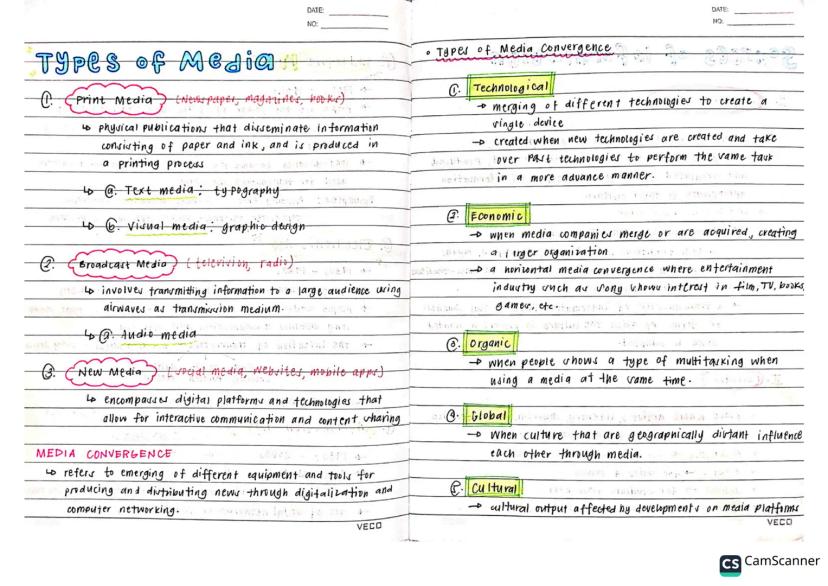 DATE:
NO:
Types of Media
1. Print Media (Newspaper, magazines, books)
↳ physical publications that disseminate information
consisting of paper and ink, and is produced in
a printing process
↳ a. Text media: typography
↳ b. Visual media: graphic design
2. Broadcast Media (television, radio)
↳ involves transmitting information to a large audience using
airwaves as transmission medium.
↳ a. Audio media
3. New Media (social media, websites, mobile apps)
↳ encompasses digital platforms and technologies that
allow for interactive communication and content sharing
MEDIA CONVERGENCE
↳ refers to emerging of different equipment and tools for
producing and distributing news through digitalization and
computer networking.
VECO
DATE:
NO:
• Types of Media Convergence
1. Technological
→ merging of different technologies to create a
single device
→ created when new technologies are created and take
over past technologies to perform the same task
in a more advance manner.
2. Economic
→ when media companies merge or are acquired, creating
a larger organization
→ a horizontal media convergence where entertainment
industry such as song shows interest in film, TV, books,
games, etc.
3. Organic
→ when people shows a type of multitasking when
using a media at the same time.
4. Global
→ when culture that are geographically distant influence
each other through media.
5. Cultural
→ cultural output affected by developments on media platforms
VECO
CS CamScanner